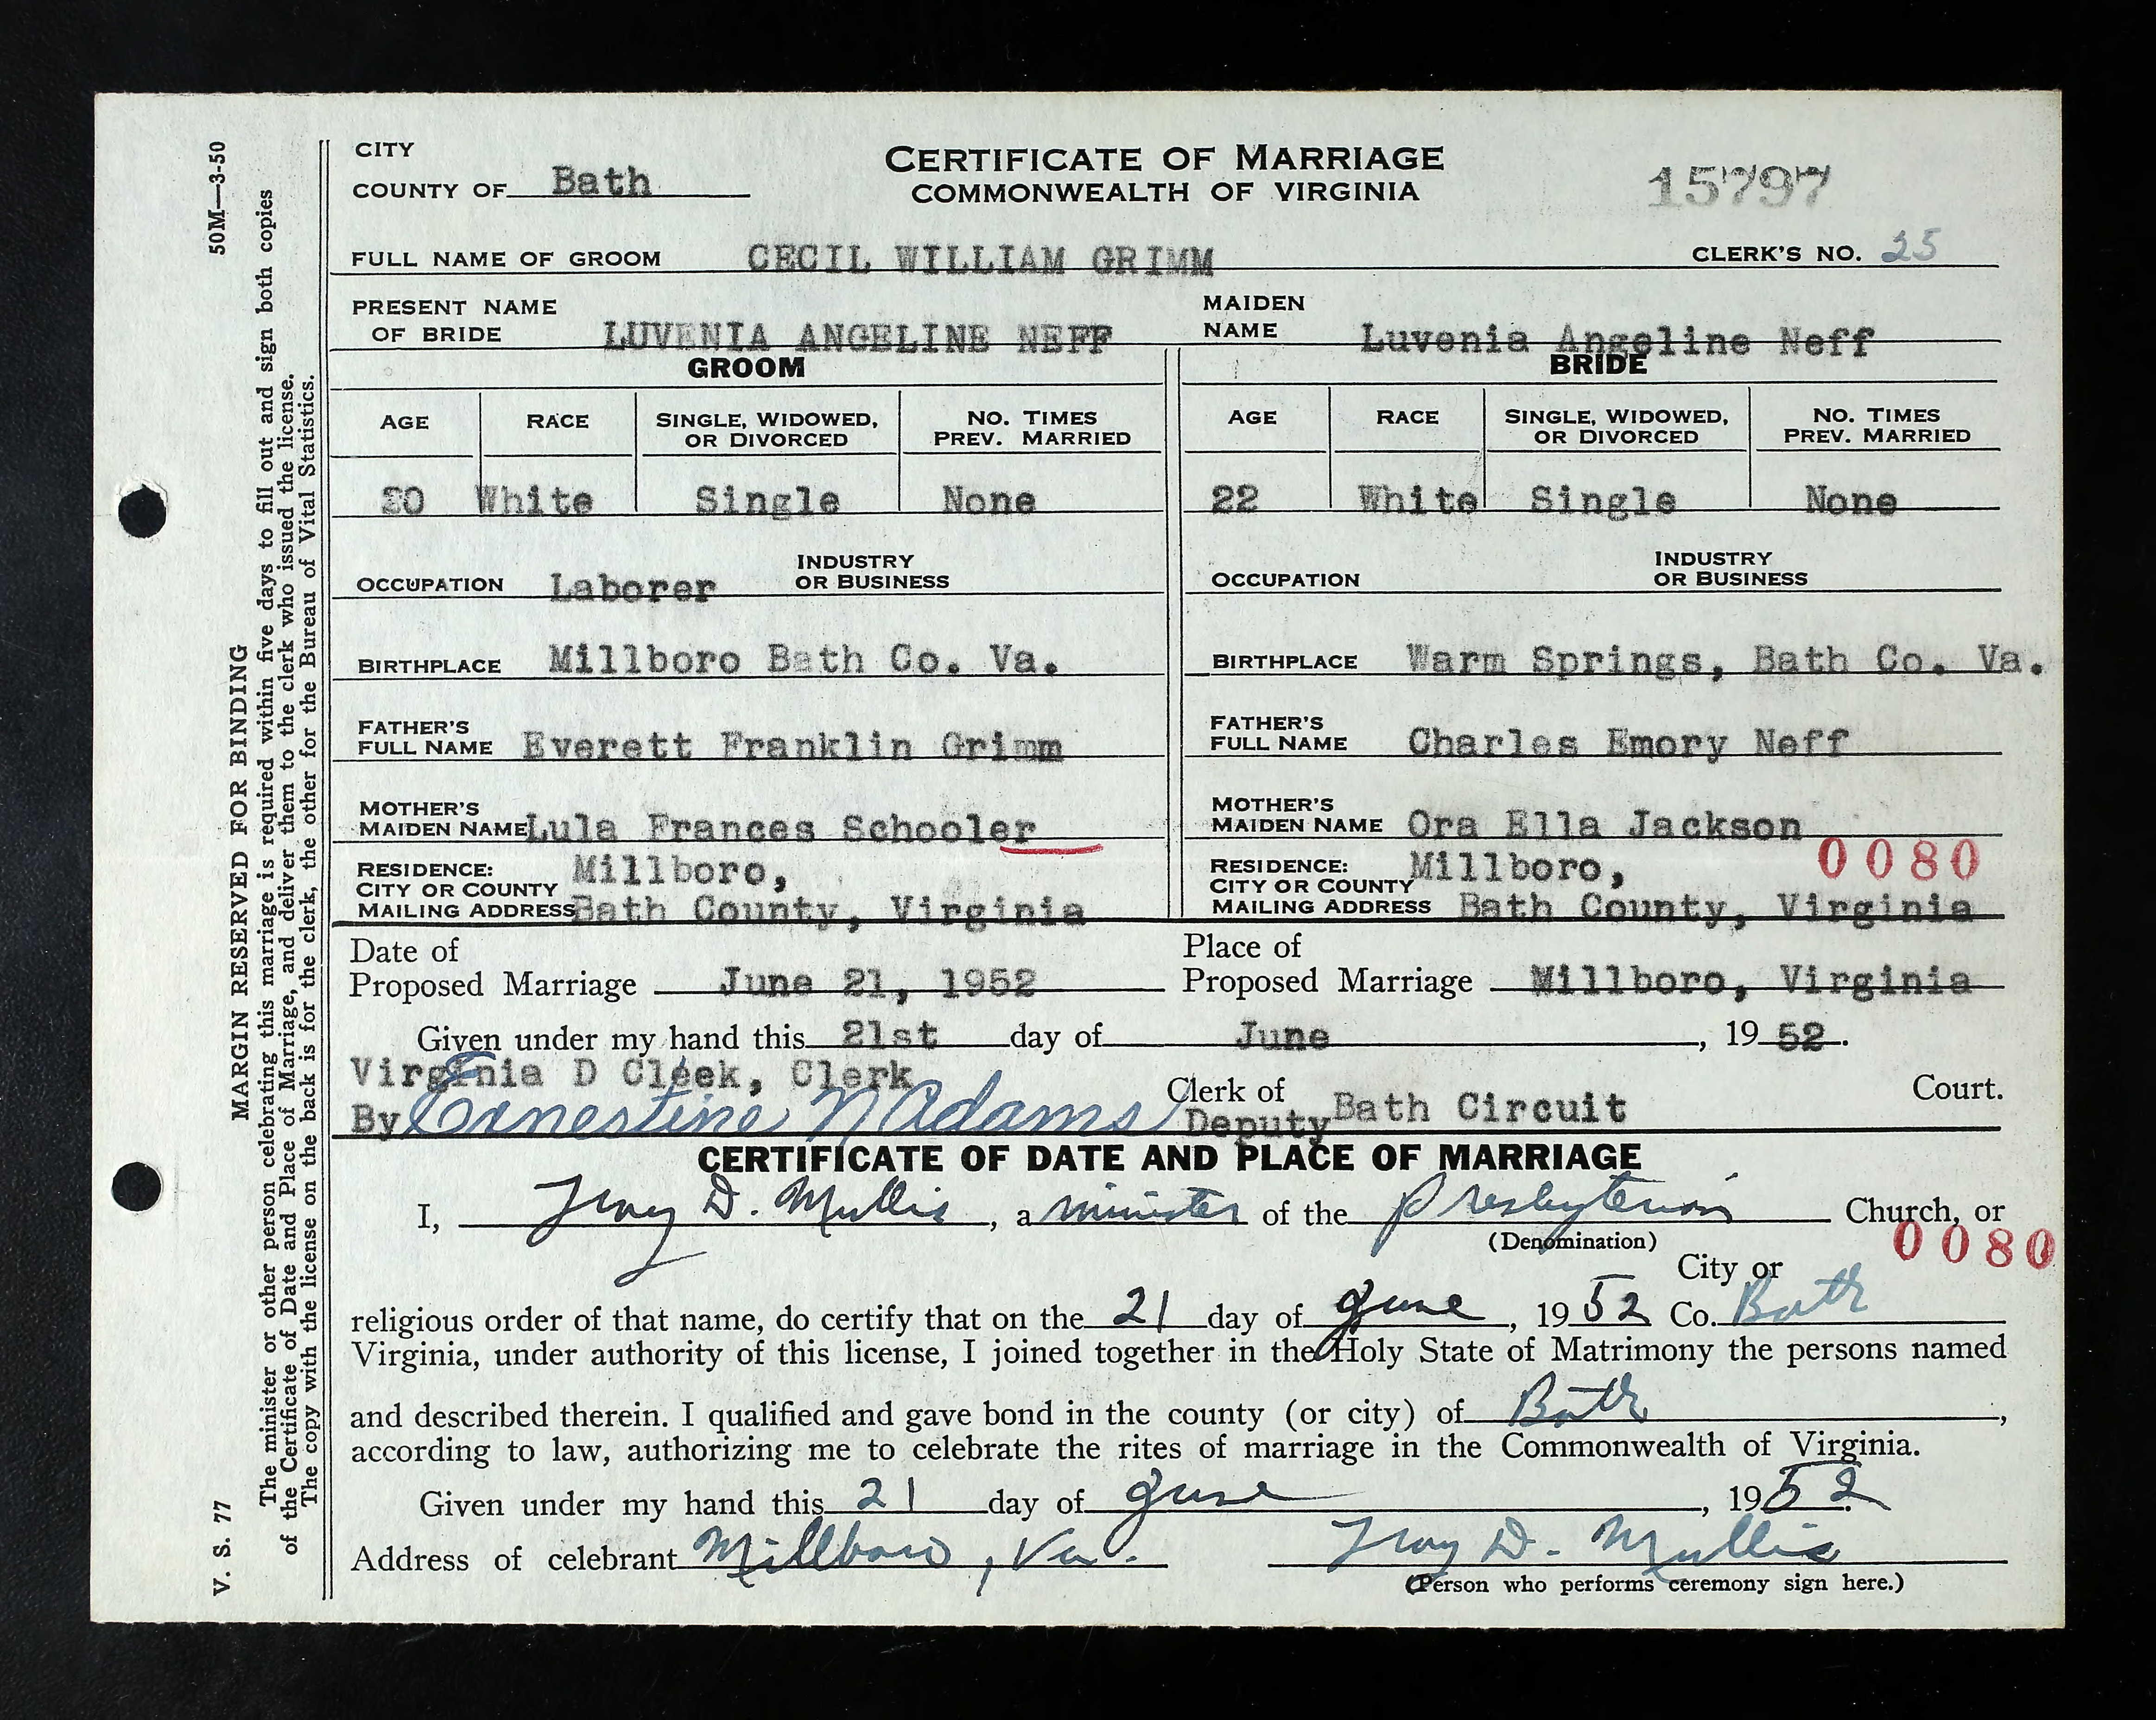 CITY
COUNTY OF Bath
CERTIFICATE OF MARRIAGE
COMMONWEALTH OF VIRGINIA
15797
FULL NAME OF GROOM CECIL WILLIAM GRIMM
CLERK'S NO. 25
PRESENT NAME
OF BRIDE LUVENIA ANGELINE NEFF
MAIDEN
NAME Luvenia Angeline Neff
GROOM
BRIDE
AGE RACE SINGLE, WIDOWED, OR DIVORCED NO. TIMES PREV. MARRIED
AGE RACE SINGLE, WIDOWED, OR DIVORCED NO. TIMES PREV. MARRIED
20 White Single None
22 White Single None
OCCUPATION Laborer INDUSTRY OR BUSINESS
OCCUPATION INDUSTRY OR BUSINESS
BIRTHPLACE Millboro Bath Co. Va.
BIRTHPLACE Warm Springs, Bath Co. Va.
FATHER'S
FULL NAME Everett Franklin Grimm
FATHER'S
FULL NAME Charles Emory Neff
MOTHER'S
MAIDEN NAME Lula Frances Schooler
MOTHER'S
MAIDEN NAME Ora Ella Jackson
0080
RESIDENCE: Millboro,
CITY OR COUNTY
MAILING ADDRESS Bath County, Virginia
RESIDENCE: Millboro,
CITY OR COUNTY
MAILING ADDRESS Bath County, Virginia
Date of
Proposed Marriage June 21, 1952
Place of
Proposed Marriage Millboro, Virginia
Given under my hand this 21st day of June, 19 52.
Virginia D Cleek, Clerk
By Ernestine N Adams
Clerk of
Deputy Bath Circuit Court.
CERTIFICATE OF DATE AND PLACE OF MARRIAGE
I, Troy D. Mullis, a minister of the Presbyterian Church, or
(Denomination)
0080
City or
religious order of that name, do certify that on the 21 day of June, 19 52 Co. Bath
Virginia, under authority of this license, I joined together in the Holy State of Matrimony the persons named
and described therein. I qualified and gave bond in the county (or city) of Bath,
according to law, authorizing me to celebrate the rites of marriage in the Commonwealth of Virginia.
Given under my hand this 21 day of June, 19 52.
Address of celebrant Millboro, Va. Troy D. Mullis
(Person who performs ceremony sign here.)
V. S. 77
MARGIN RESERVED FOR BINDING
50M—3-50
The minister or other person celebrating this marriage is required within five days to fill out and sign both copies
of the Certificate of Date and Place of Marriage, and deliver them to the clerk who issued the license.
The copy with the license on the back is for the clerk, the other for the Bureau of Vital Statistics.